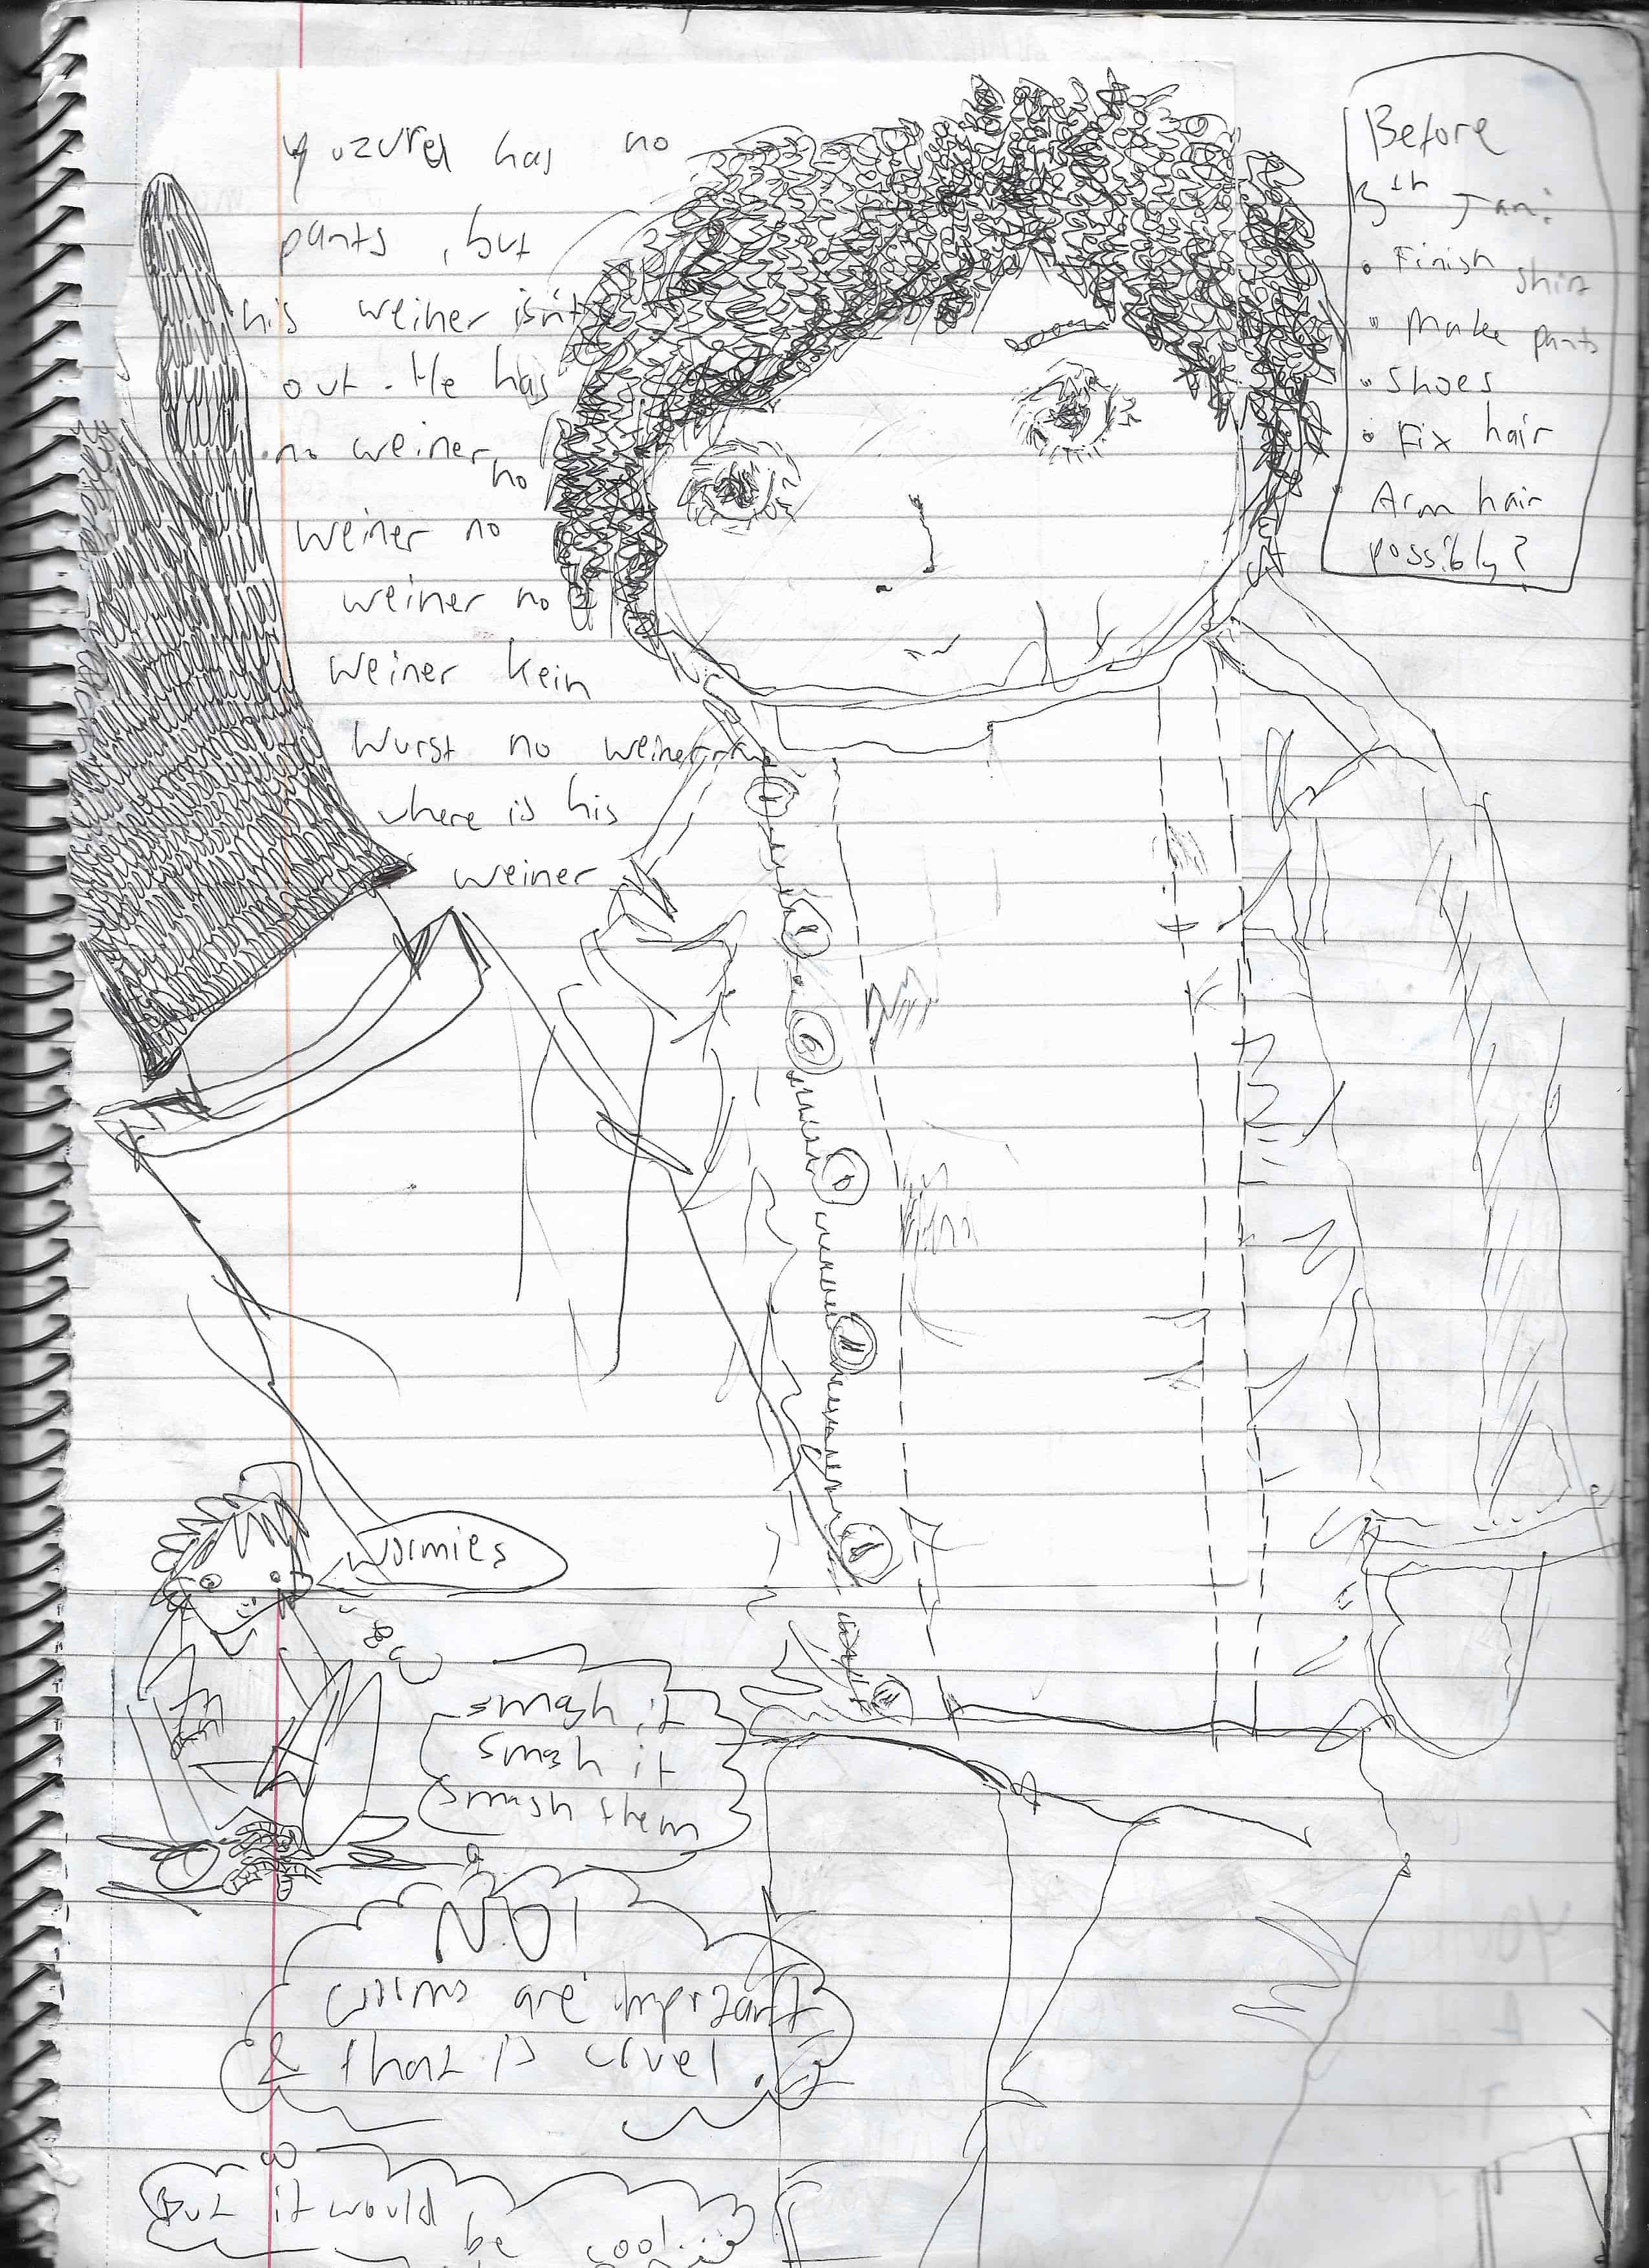 yuzuru has no
pants, but
his weiner isn't
out. He has
no weiner no
weiner no
weiner no
weiner kein
wurst no weiner
where is his
weiner
Before
13th Jan:
• Finish shirt
• Make pants
• Shoes
• Fix hair
Arm hair
possibly?
wormies
smash it
smash it
smush them
NO!
worms are important
& that is cruel.
But it would
be cool...